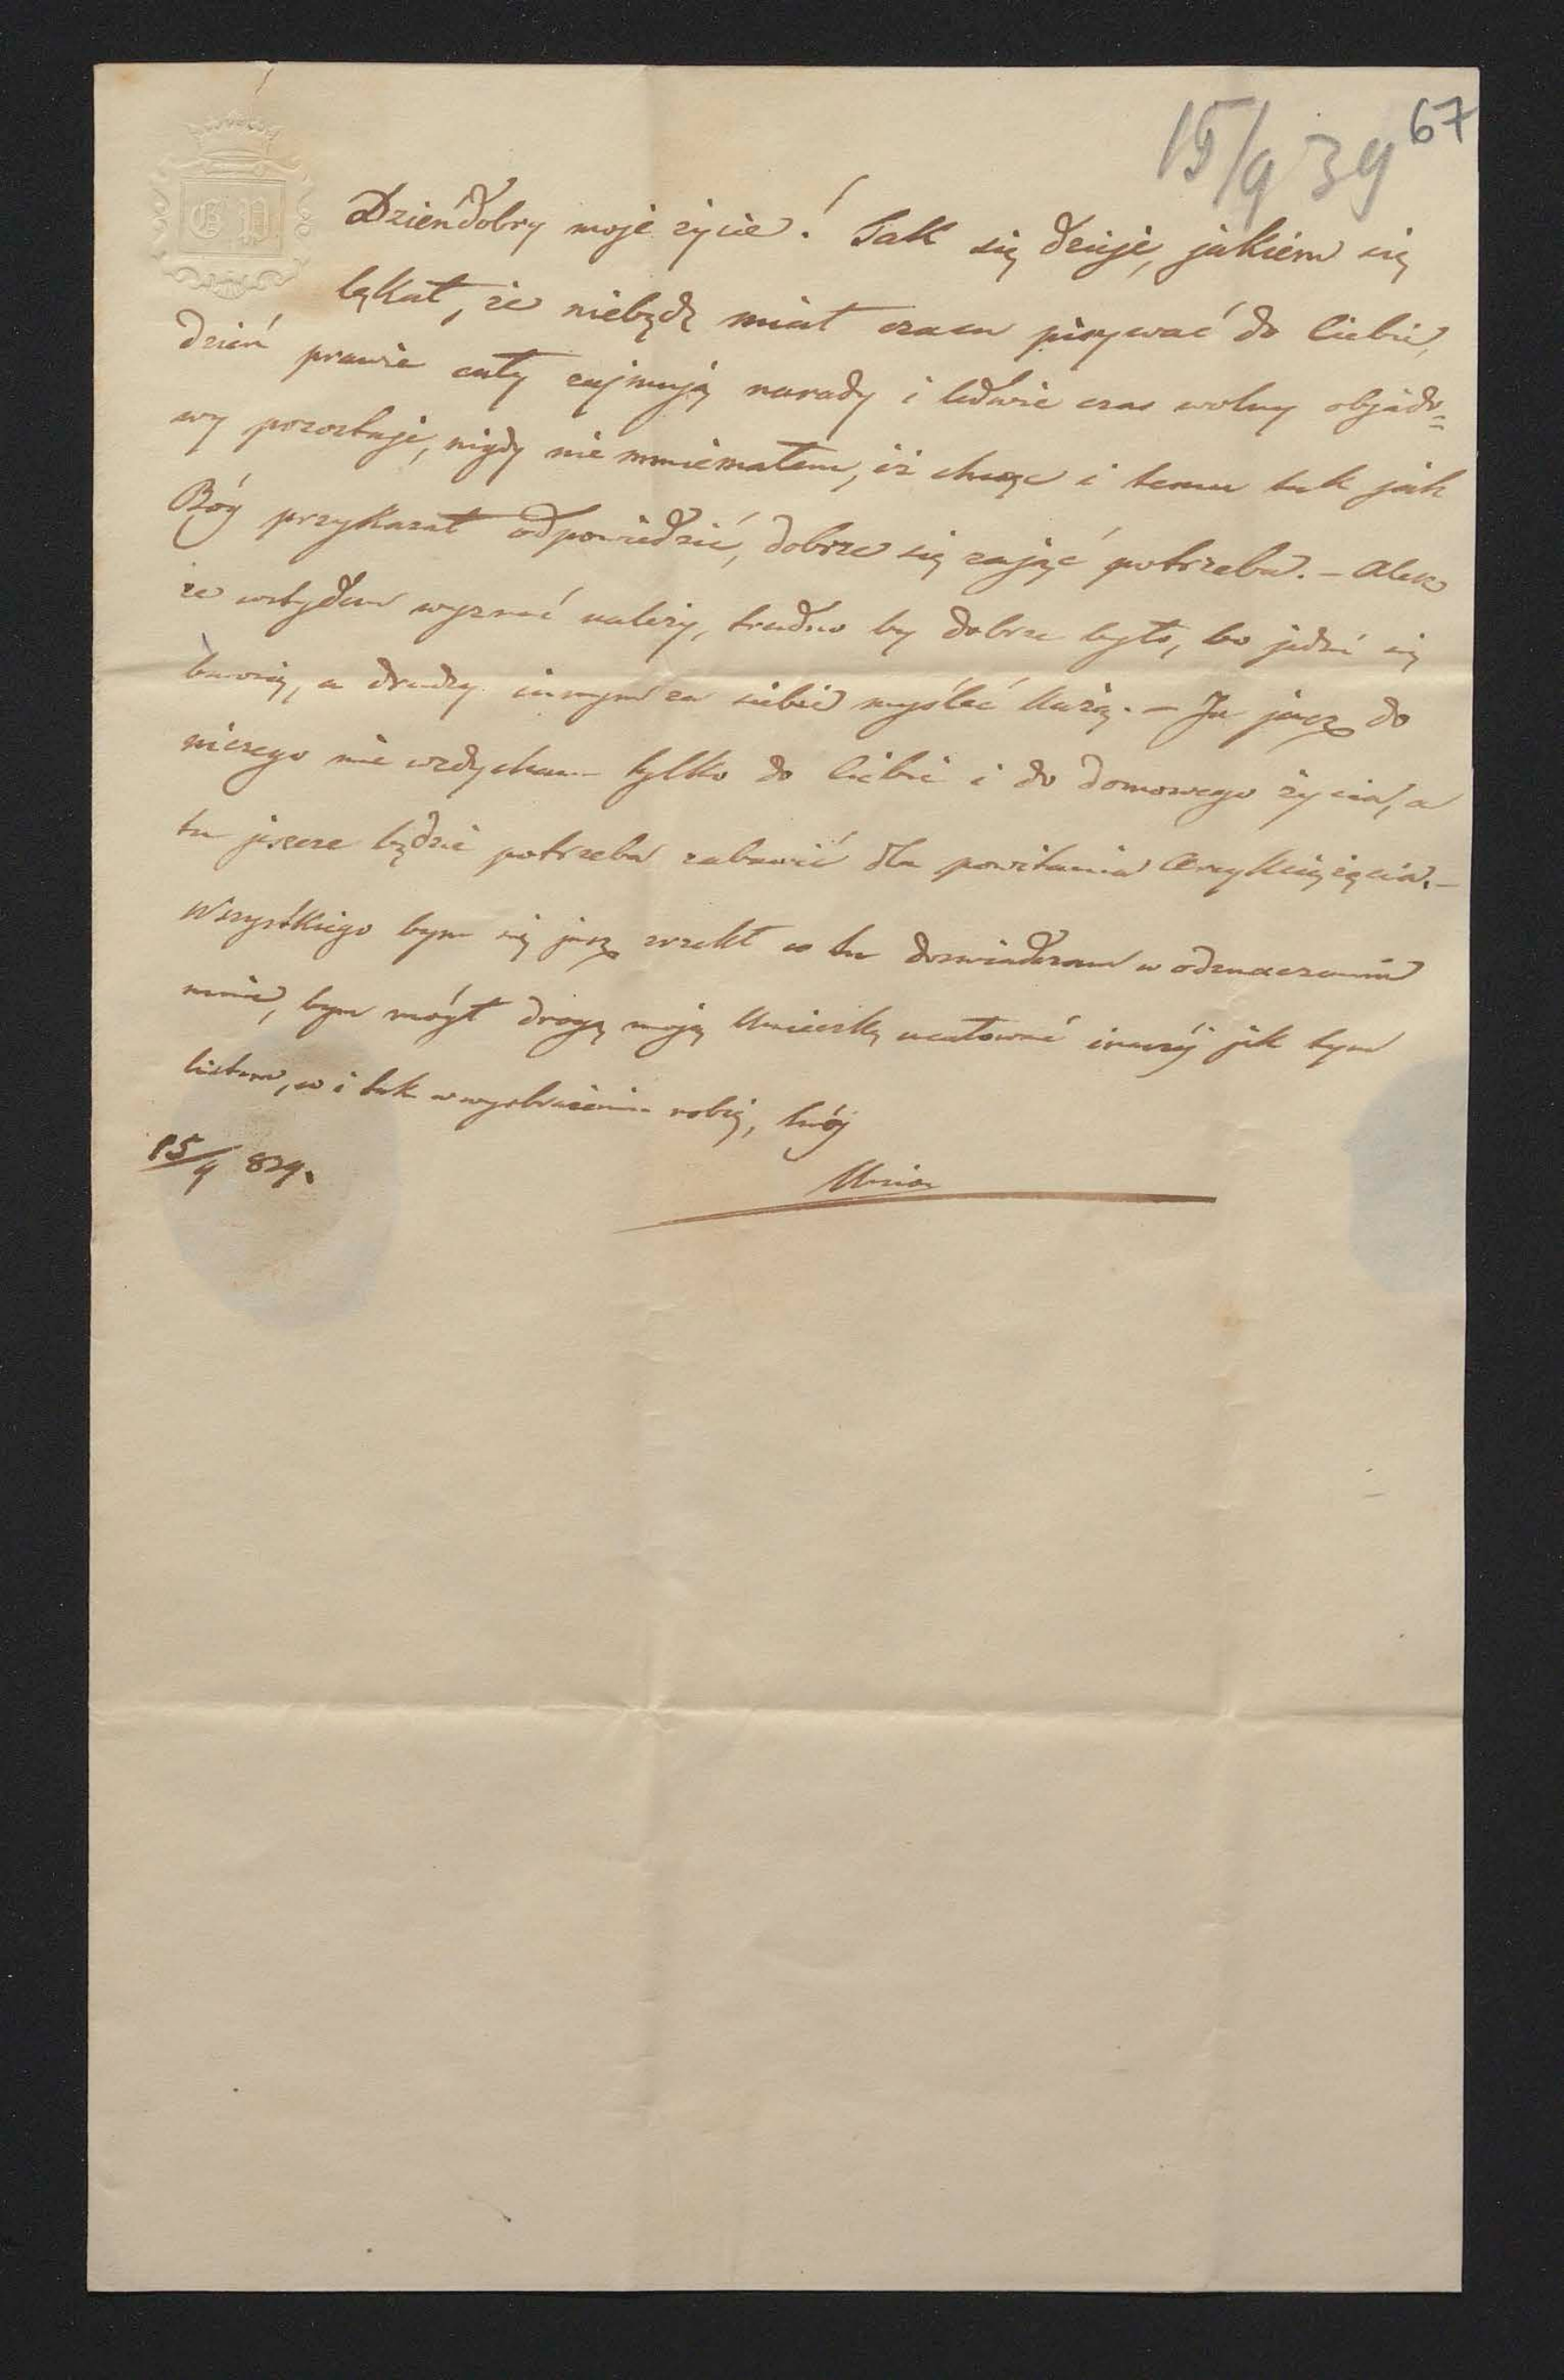 67
15/9 39
G P
Dzieńdobry moje życie! Tak się dzieje, jakiem się
lękał, że niebędę miał czasu pisywać do Ciebie,
dzień prawie cały zajmują narady i ledwie czas wolny objado=
wy pozostaje, nigdy nie mniemałem, iż chcąc i temu tak jak
Bóg przykazał odpowiedzić, dobrze się zająć potrzeba. – Ale
ze wstydem wyznać należy, trudno by dobrze było, bo jedni się
bawią, a drudzy innym za siebie myśleć każą. – Ja jusz do
niczego nie wzdycham tylko do Ciebie i do domowego życia, a
tu jeszcze będzie potrzeba zabawić dla powitania Arcyksięcia. –
Wszystkiego bym się jusz zrzekł co tu doświadczam w odznaczeniu
mnie, bym mógł drogą moją ucałować inaczéj jak tym
listem, co i tak w wyobrażeniu robię, twój
15/9 839.